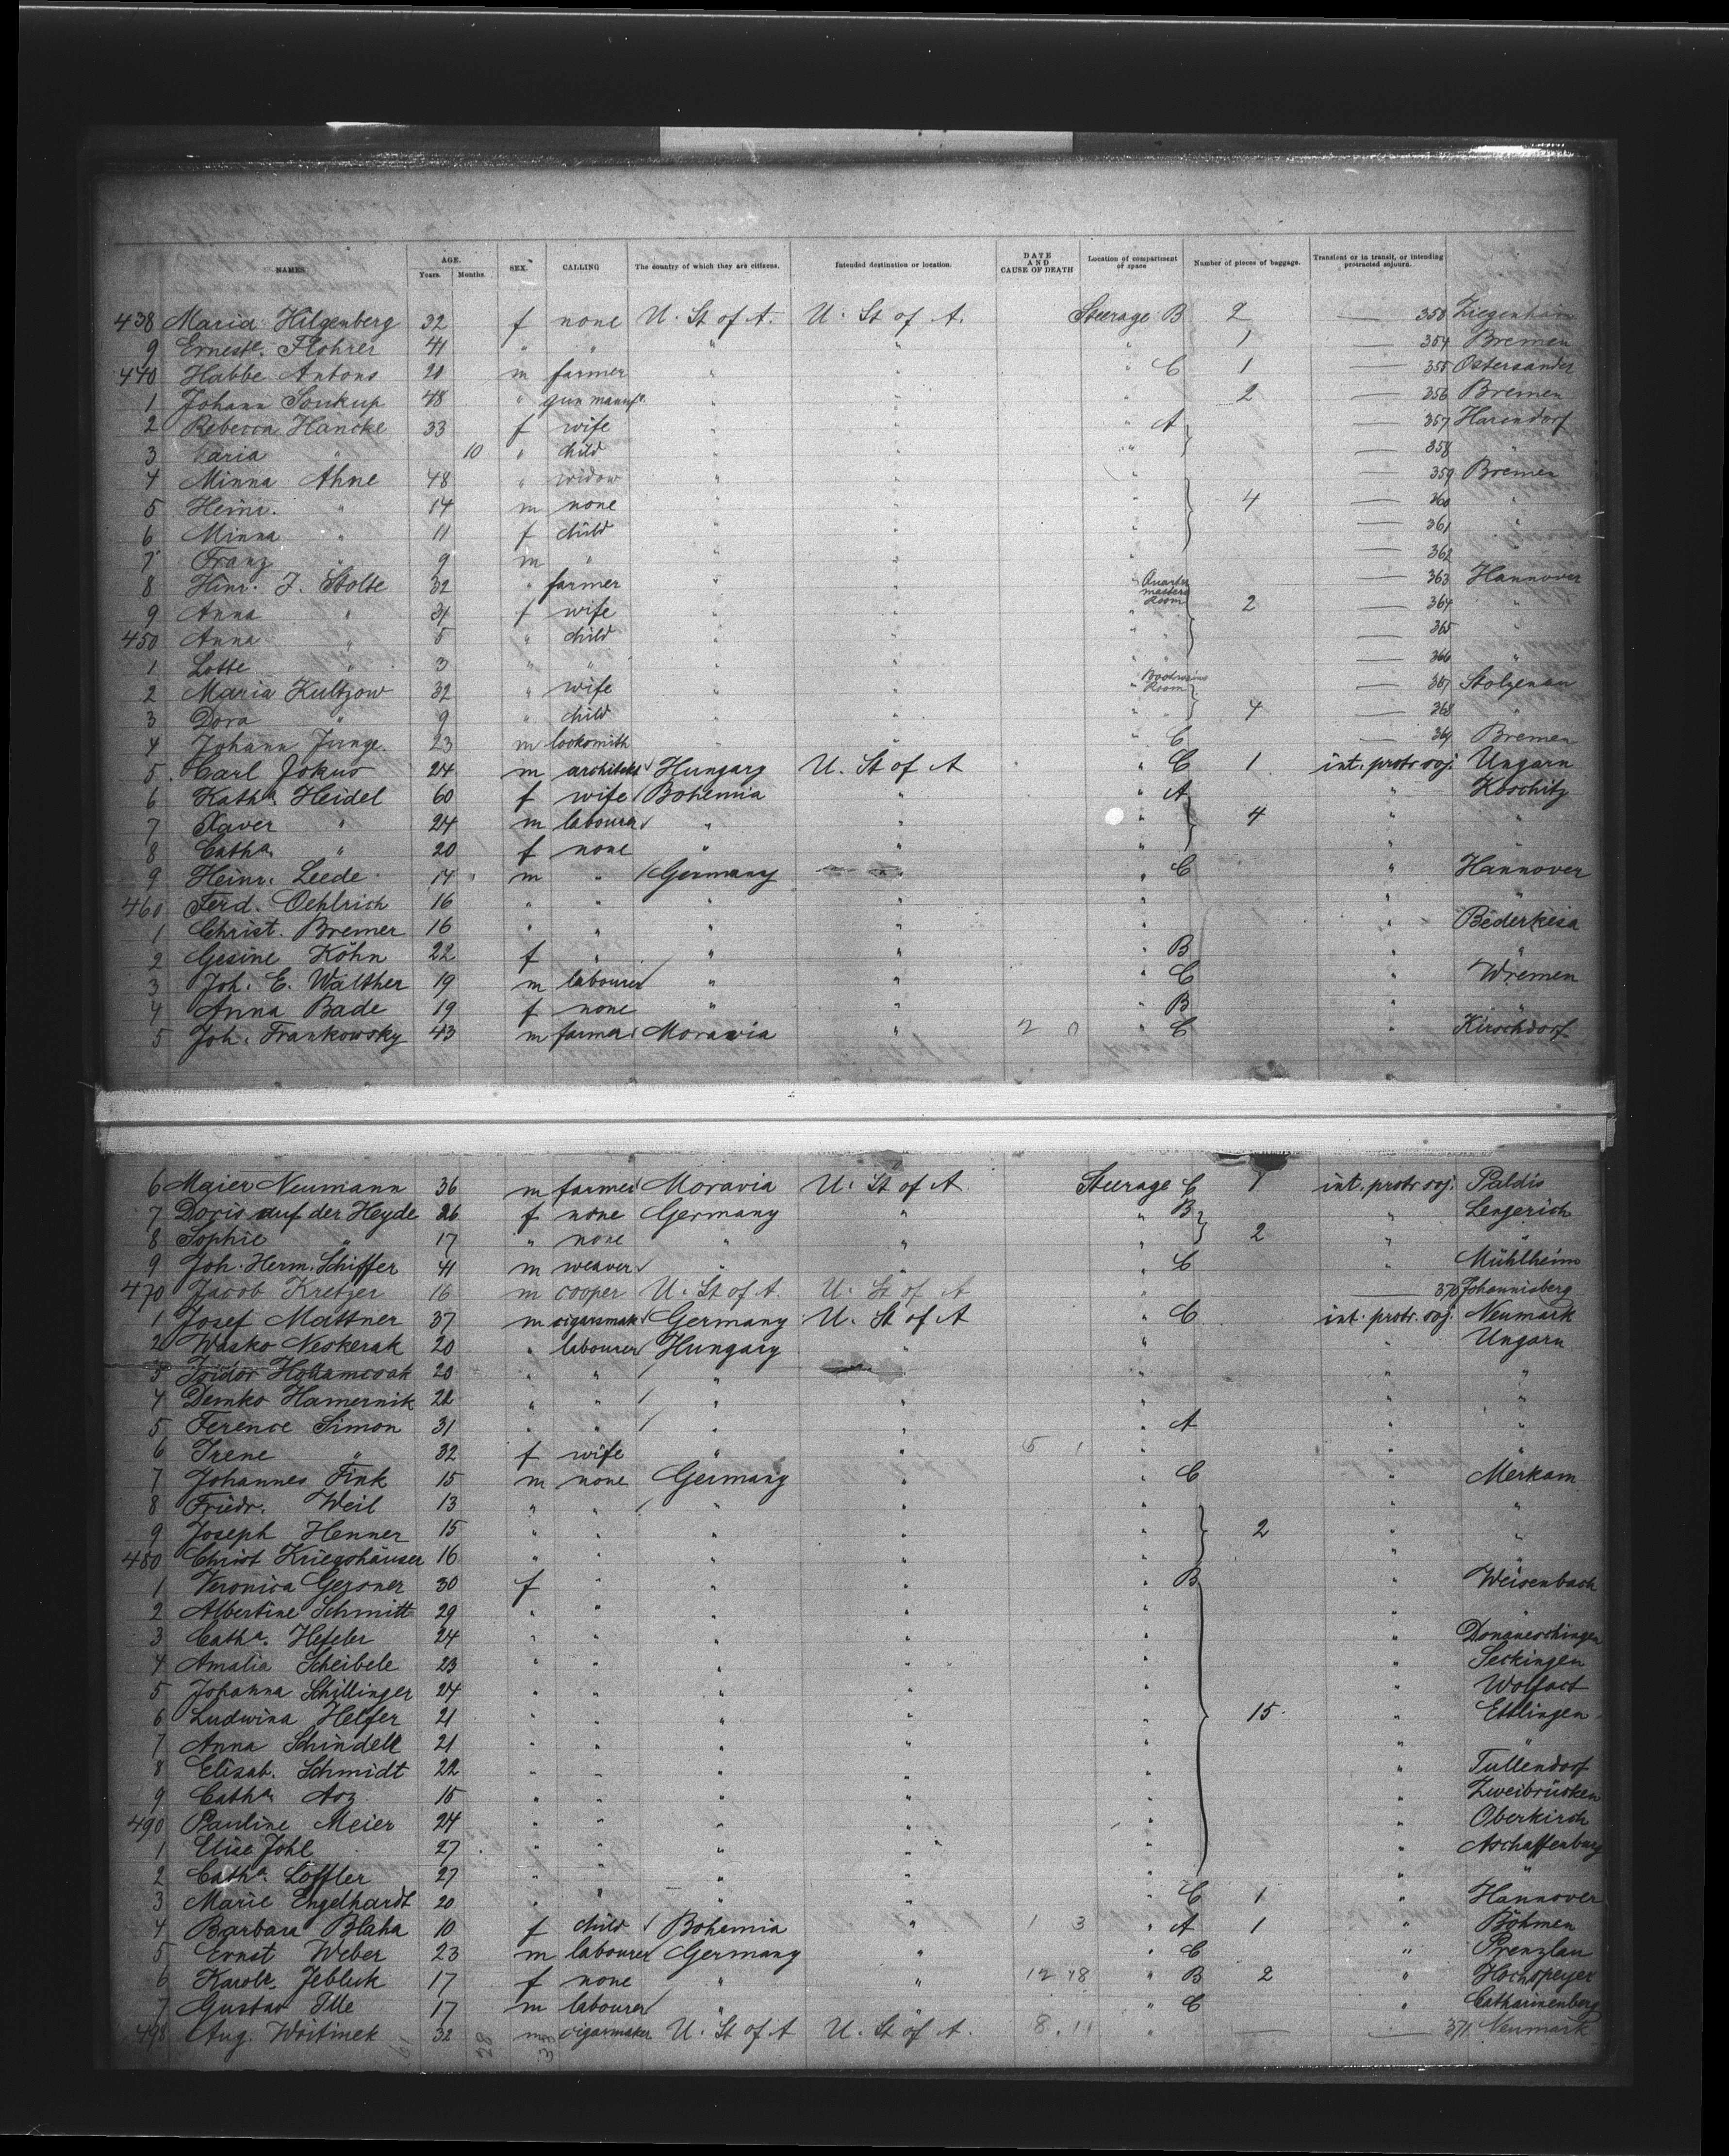 NAMES AGE. Years. Months. SEX. CALLING The country of which they are citizens. Intended destination or location. DATE AND CAUSE OF DEATH Location of compartment or space Number of pieces of baggage. Transient or in transit, or intending protracted sojourn.
438 Maria Hilgenberg 32 f none U. St of A. U. St of A. Steerage B 2 — 353 Ziegenhain
9 Erneste. Flohrer 41 " " " " " 1 — 354 Bremen
440 Habbe Antons 20 m farmer " " " C 1 — 355 Ostersander
1 Johann Soukup 48 " gun manufr. " " " 2 — 356 Bremen
2 Rebecca Hancke 33 f wife " " " A — 357 Harendorf
3 Maria " 10 " child " " " " — 358 "
4 Minna Ahne 48 " widow " " " — 359 Bremen
5 Heinr. " 14 m none " " " 4 — 360 "
6 Minna " 11 f child " " " — 361 "
7 Franz " 9 m " " " " — 362 "
8 Hinr. J. Stolte 32 " farmer " " " Quarter masters Room — 363 Hannover
9 Anna " 31 f wife " " " 2 — 364 "
450 Anna " 5 " child " " " " — 365 "
1 Lotte " 3 " " " " " " — 366 "
2 Maria Kultzow 32 " wife " " " Bootswains Room — 367 Stolzenau
3 Dora " 9 " child " " " " 4 — 368 "
4 Johann Junge. 23 m locksmith " " " C — 369 Bremen
5 Carl Jokus 24 m architekt Hungary U. St of A " C 1 int. protr. soj. Ungarn
6 Katha. Heidel 60 f wife Bohemia " " A " Koschitz
7 Xaver " 24 m labourer " " " 4 " "
8 Catha. " 20 f none " " " " "
9 Heinr. Leede 14 m " Germany " " C " Hannover
460 Ferd. Oehlrich 16 " " " " " " "
1 Christ. Bremer 16 " " " " " " Bederkesa
2 Gesine Köhn 22 f " " " " B " "
3 Joh. E. Walther 19 m labourer " " " C " Wremen
4 Anna Bade 19 f none " " " B " "
5 Joh. Frankowsky 43 m farmer Moravia " 2 0 " C " Kirschdorf
6 Maier Neumann 36 m farmer Moravia U. St of A Steerage C 1 int. protr. soj. Paldis
7 Doris auf der Heyde 26 f none Germany " " B " Lengerich
8 Sophie " 17 " none " " " 2 " "
9 Joh. Herm. Schiffer 41 m weaver " " " C " Mühlheim
470 Jacob Kretzer 16 m cooper U. St of A. U. St of A " — 370 Johannisberg
1 Josef Mattner 37 m cigarsmak. Germany U. St of A " C int. protr. soj. Neumark
2 Wasko Neskerak 20 " labourer Hungary " " " Ungarn
3 Isidor 20 " " " " " " "
4 Demko Hamernik 22 " " " " " " "
5 Ference Simon 31 " " " " " A " "
6 Irene " 32 f wife " " 5 1 " " "
7 Johannes Fink 15 m none Germany " " C " Merkam
8 Friedr. Weil 13 " " " " " " "
9 Joseph Henner 15 " " " " " 2 " "
480 Christ Kriegshäuser 16 " " " " " " "
1 Veronica Gersner 30 f " " " " B " Weisenbach
2 Albertine Schmitt 29 " " " " " " "
3 Catha. Hefeler 24 " " " " " " Donaueschingen
4 Amalia Scheibele 23 " " " " " " Seckingen
5 Johanna Schillinger 24 " " " " " " Wolfact
6 Ludwina Helfer 21 " " " " " 15. " Ettlingen
7 Anna Schindele 21 " " " " " " "
8 Elisab. Schmidt 22 " " " " " " Tullendorf
9 Catha. Arz 15 " " " " " " Zweibrücken
490 Pauline Meier 24 " " " " " " Oberkirch
1 Elise Johl 27 " " " " " " Aschaffenburg
2 Catha. Löffler 27 " " " " " " "
3 Marie Engelhardt 20 " " " " " C 1 " Hannover
4 Barbara Blaha 10 f child Bohemia " 1 3 " A 1 " Böhmen
5 Ernst Weber 23 m labourer Germany " " C " Prenzlau
6 Karole. Jebluk 17 f none " " 12 78 " B 2 " Hochspeyer
7 Gustav Ille 17 m labourer " " " C " Catharinenberg
498 Aug. Wöstinek 32 m cigarmaker U. St of A U. St of A. 8. 11 " — — 371 Neumark
61 28 33